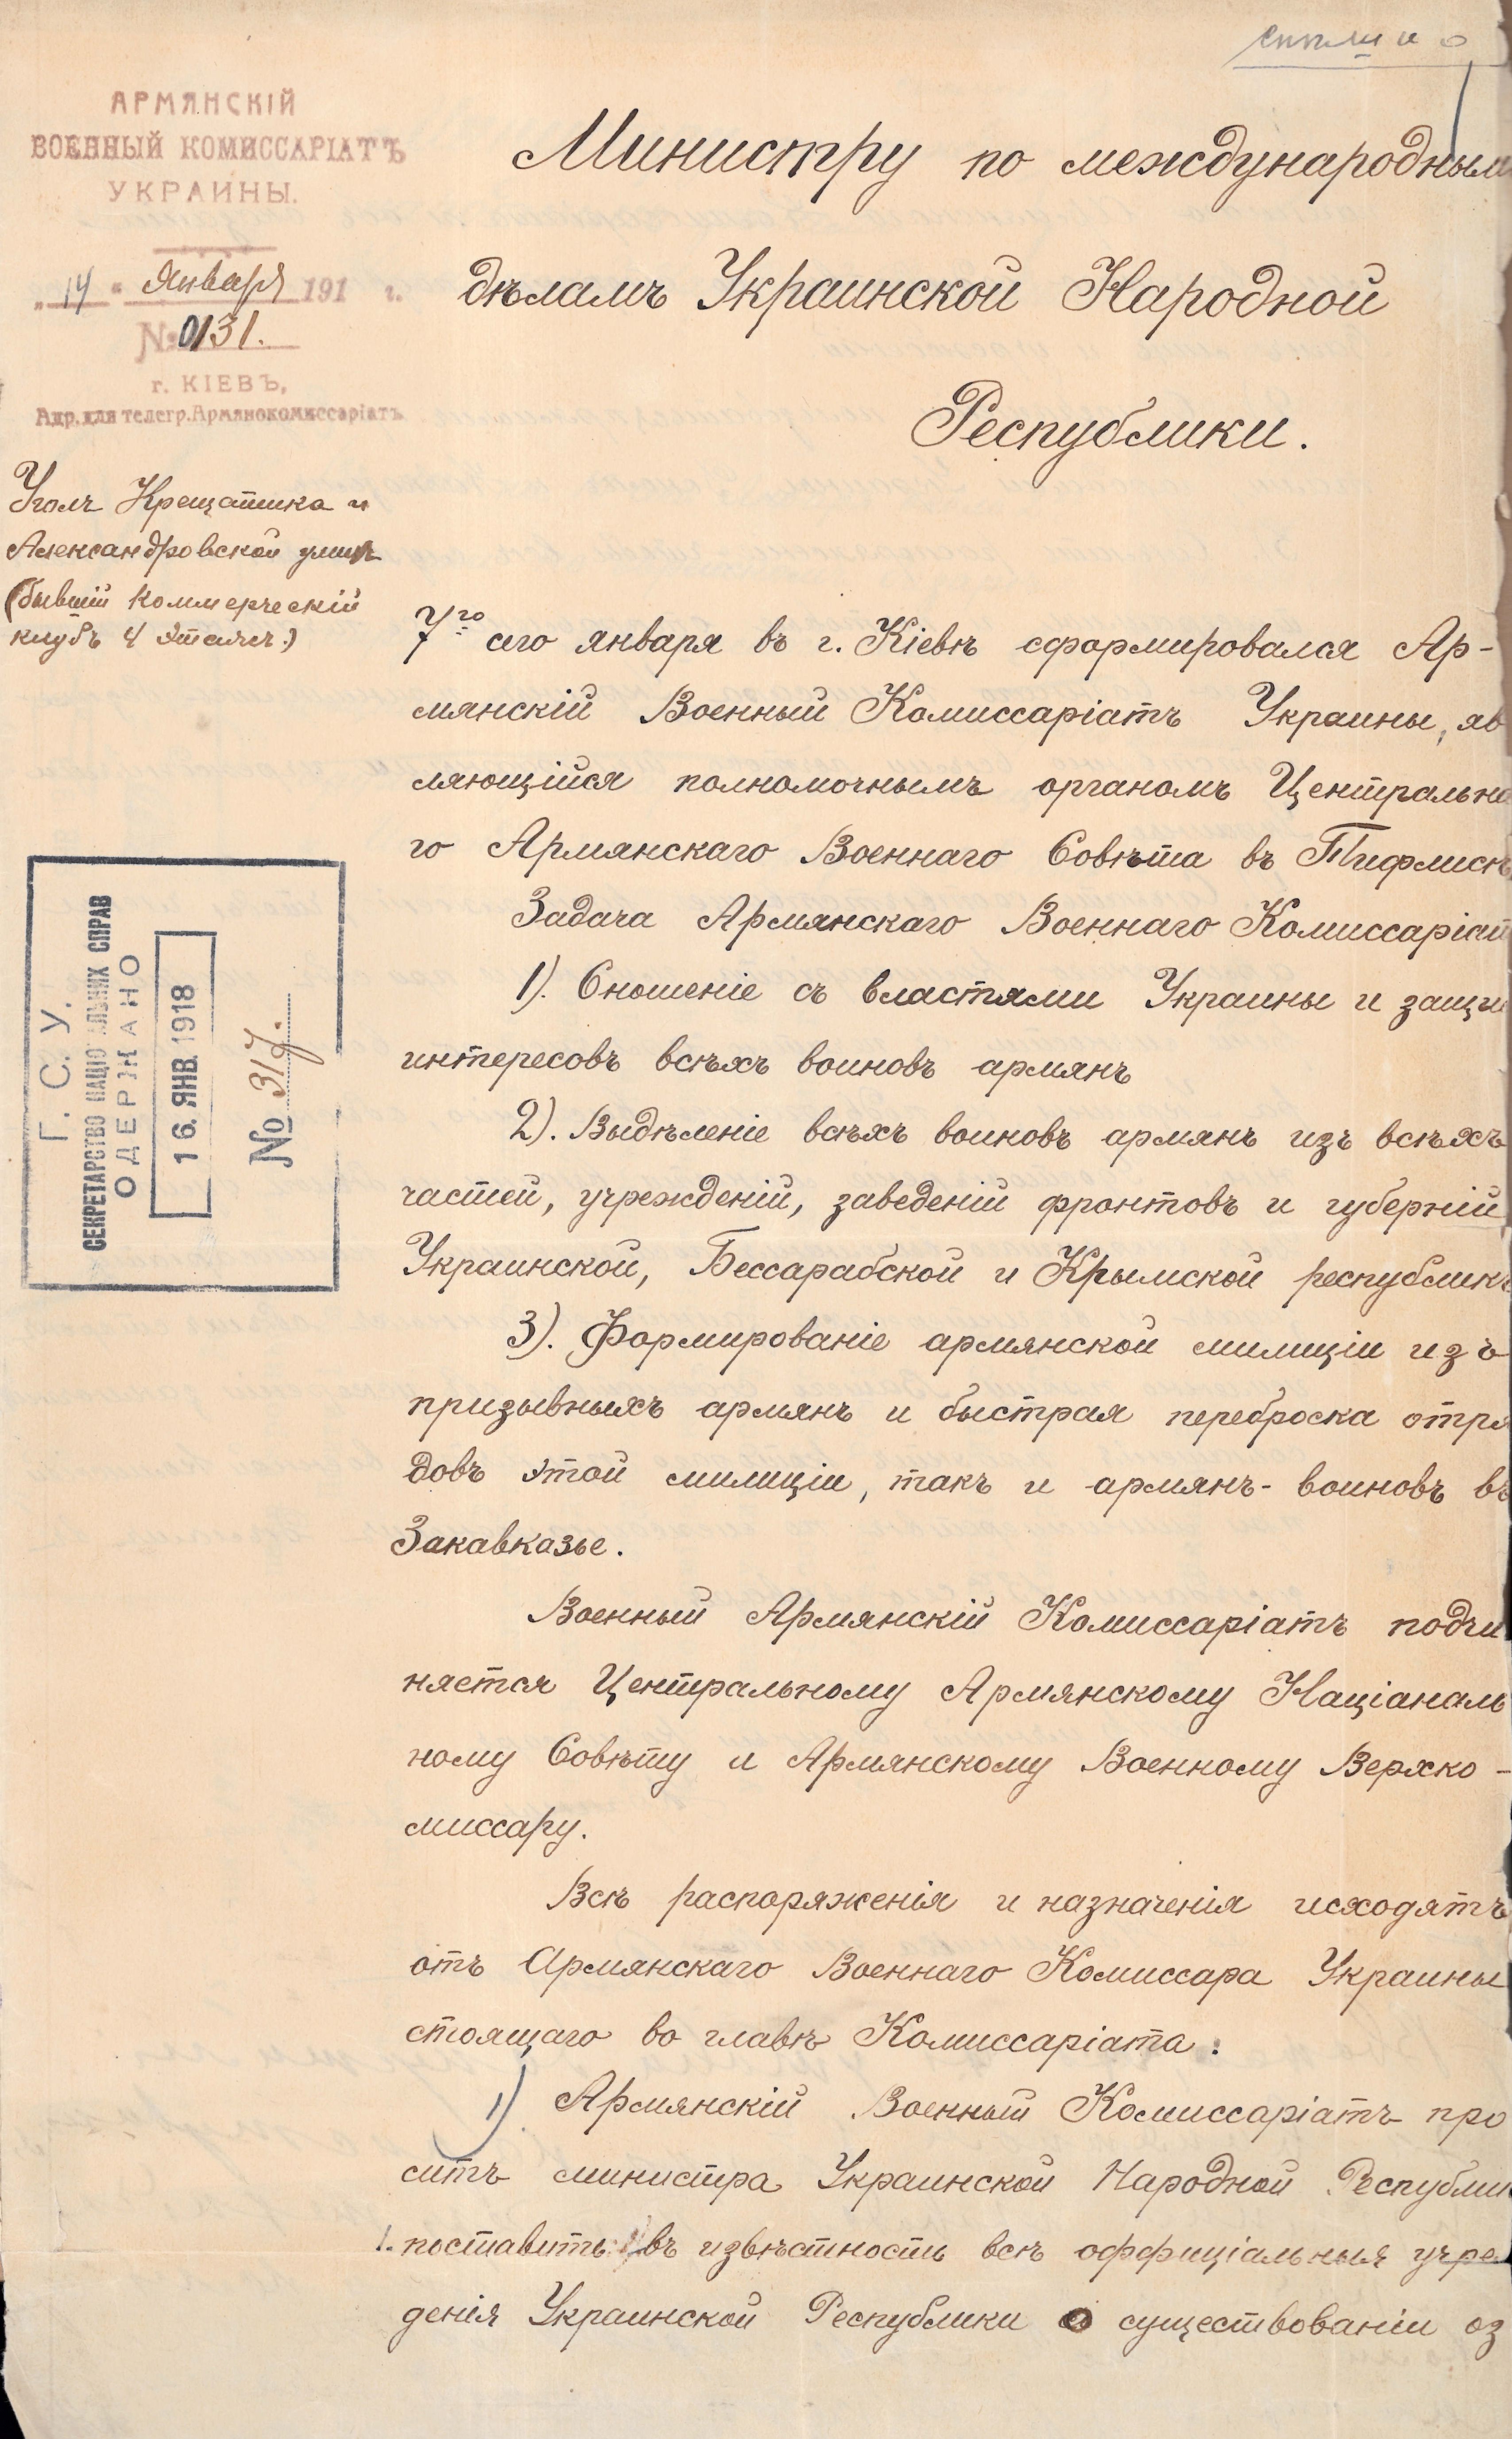 АРМЯНСКІЙ
ВОЕННЫЙ КОМИССАРІАТЪ
УКРАИНЫ.
„ 14 " Января 191 г.
№ 0131.
г. КІЕВЪ,
Адр. для телегр. Армянокомиссаріатъ
Уголъ Крещатика и
Александровской улицъ
(бывшій Коммерческій
клубъ 4 этажъ.)
Г. С. У.
СЕКРЕТАРСТВО НАЦІО АЛЬНИХ СПРАВ
ОДЕРЖАНО
16. ЯНВ. 1918
№ 317.
Министру по международным
дѣламъ Украинской Народной
Республики.
7го сего января въ г. Кіевѣ сформировался Ар-
мянскій Военный Комиссаріатъ Украины, яв
ляющійся полномочнымъ органомъ Центрально
го Армянскаго Военнаго Совѣта въ Тифлисѣ
Задача Армянскаго Военнаго Комиссаріат
1). Сношеніе съ властями Украины и защи
интересовъ всѣхъ воиновъ армянъ
2). Выдѣленіе всѣхъ воиновъ армянъ изъ всѣхъ
частей, учрежденій, заведеній фронтовъ и губерній
Украинской, Бессарабской и Крымской республикъ
3). Формированіе армянской милиціи изъ
призывныхъ армянъ и быстрая переброска отря
довъ этой милиціи, такъ и армянъ-воиновъ въ
Закавказье.
Военный Армянскій Комиссаріатъ подчи
няется Центральному Армянскому Націаналь
ному Совѣту и Армянскому Военному Верхко-
миссару.
Всѣ распоряженія и назначенія исходятъ
отъ Армянскаго Военнаго Комиссара Украины
стоящаго во главѣ Комиссаріата.
1) Армянскій Военный Комиссаріатъ про
ситъ министра Украинской Народной Республик
1. поставить въ извѣстность всѣ оффиціальныя учре
денія Украинской Республики о существованіи оз